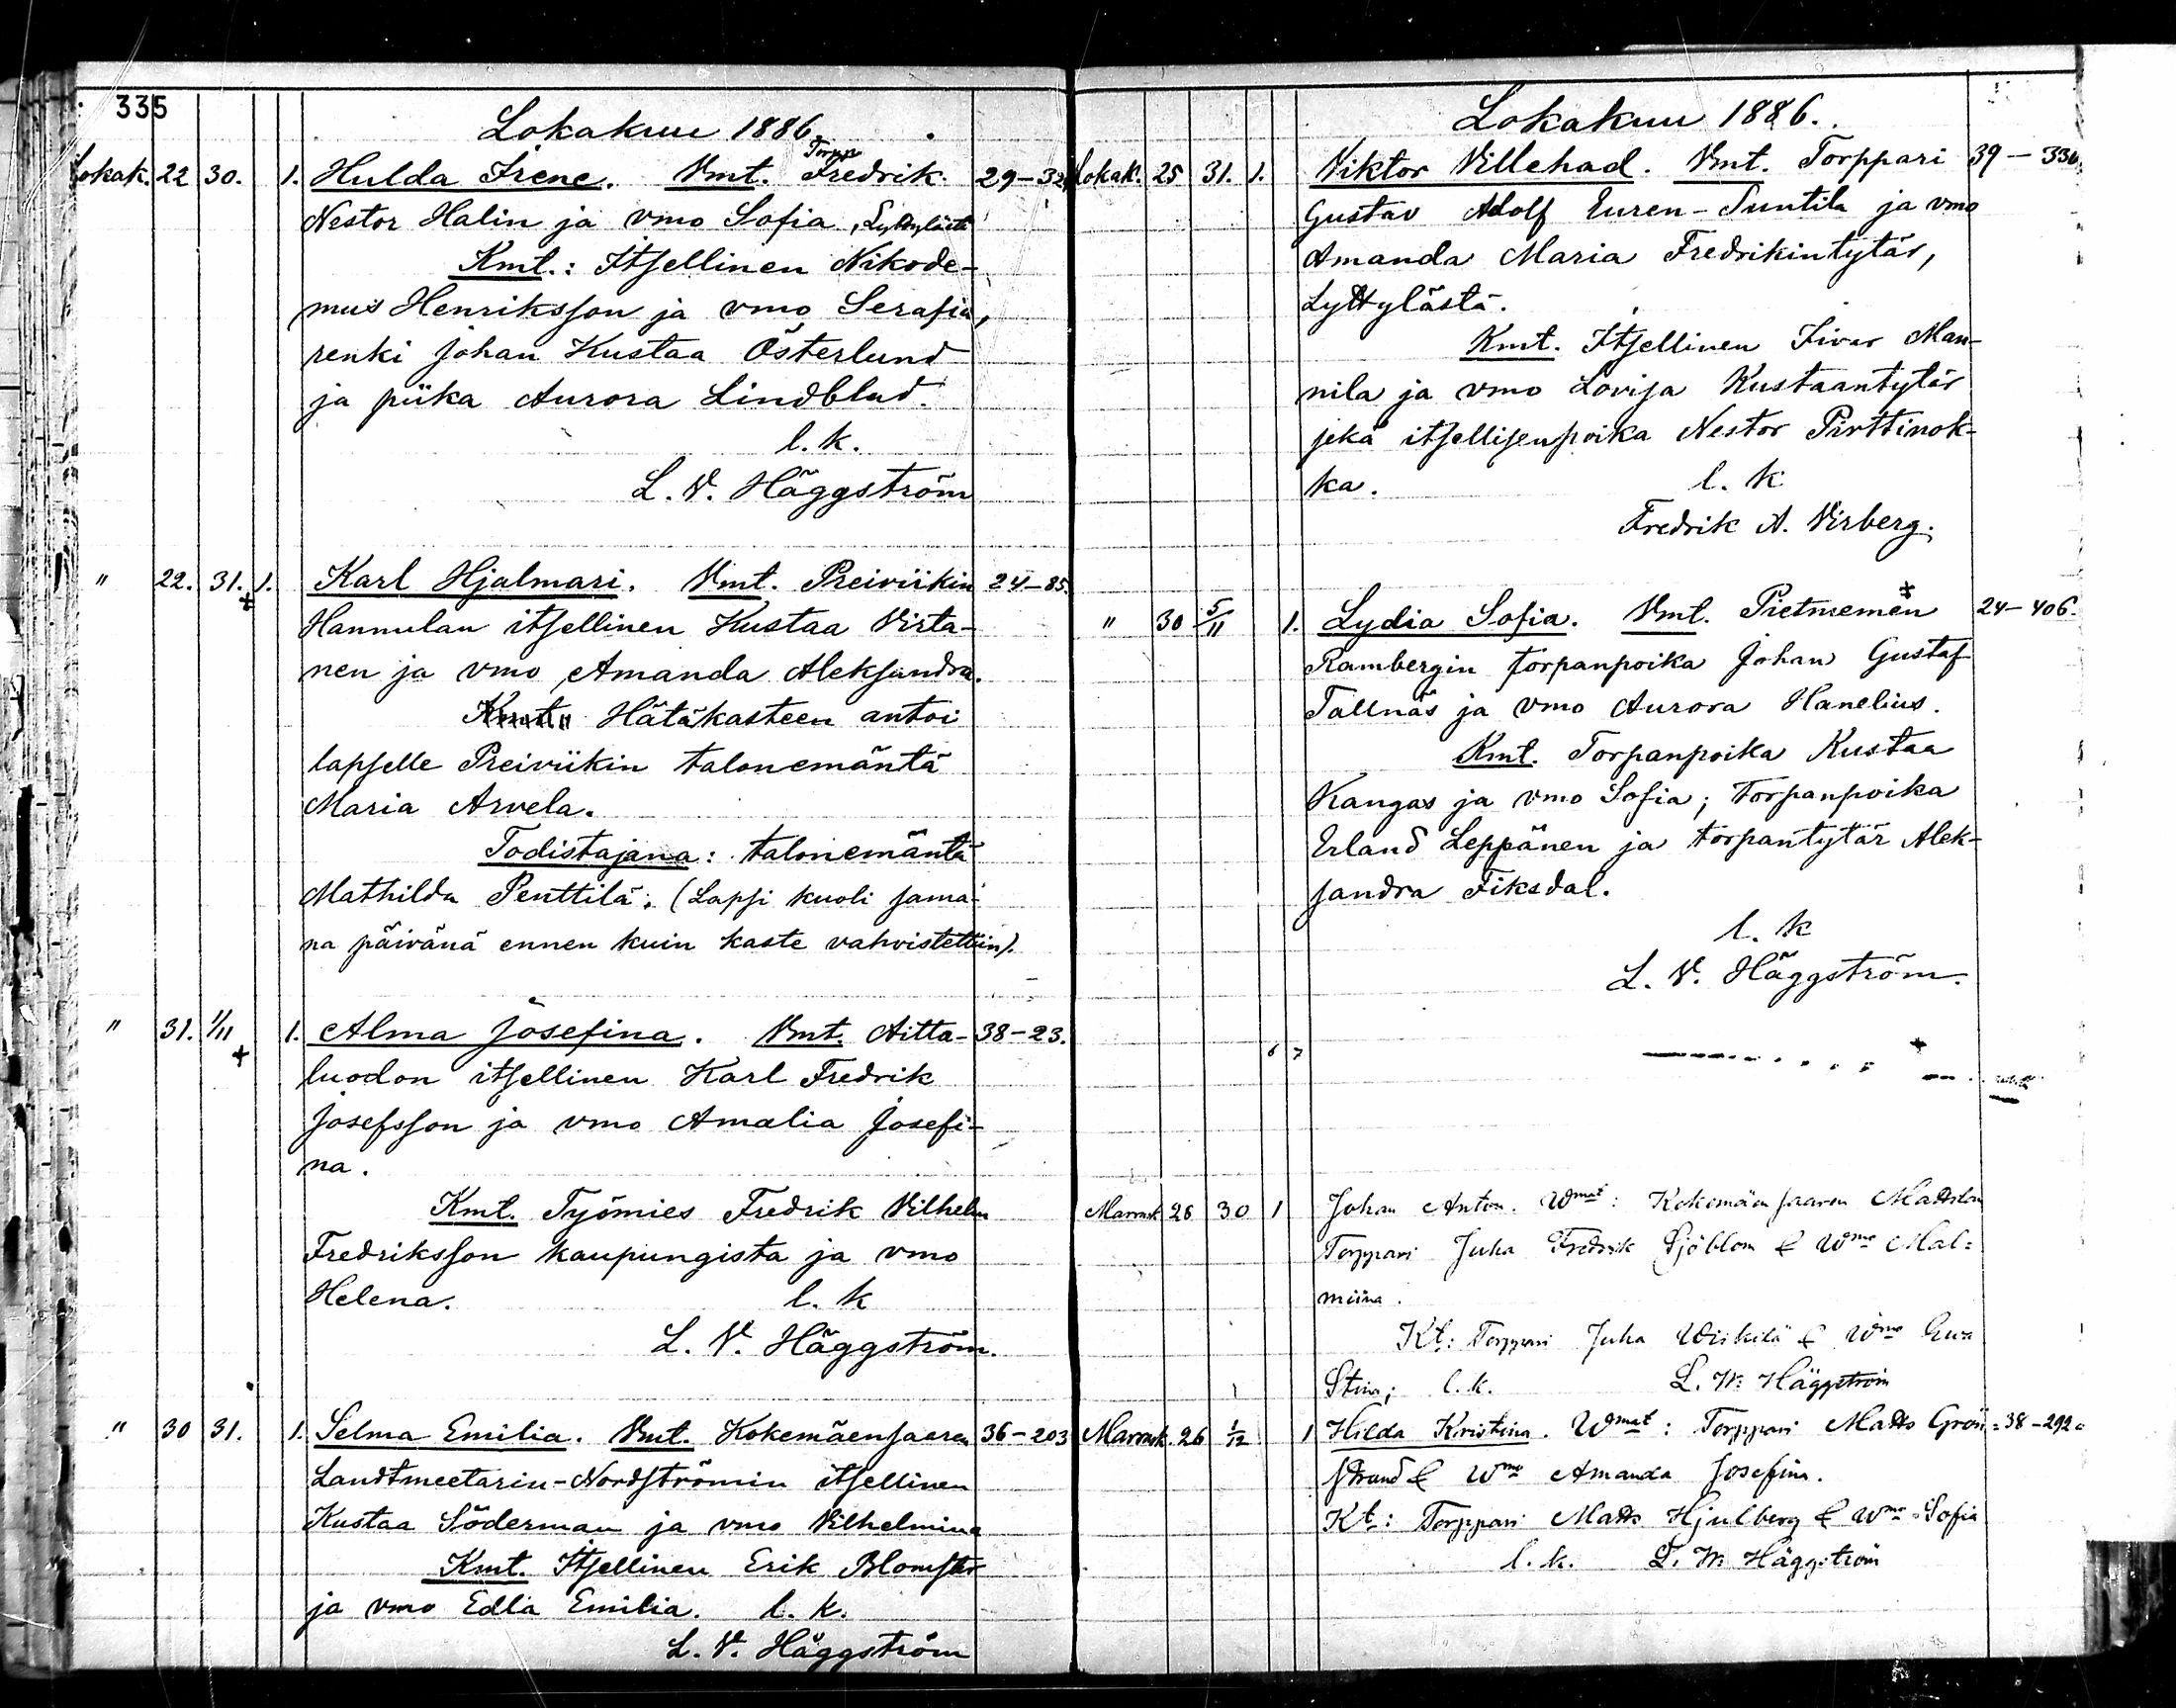 335
Lokakuu 1886.
Lokak. 22 30. 1. Hulda Irene. Vmt. Torpp Fredrik 29-32
Nestor Halin ja vmo Sofia, Lyttylästä
Kmt.: Itsellinen Nikode-
mus Henriksson ja vmo Serafia,
renki Johan Kustaa Österlund
ja piika Aurora Lindblad.
l. k.
L. V. Häggström
" 22. 31. + 1. Karl Hjalmari. Vmt. Preiviikin 24-85.
Hannulan itsellinen Kustaa Virta-
nen ja vmo Amanda Aleksandra.
Kmt. Hätäkasteen antoi
lapselle Preiviikin talonemäntä
Maria Arvela.
Todistajana: talonemäntä
Mathilda Penttilä. (Lapsi kuoli sama-
na päivänä ennen kuin kaste vahvistettiin).
" 31. 1/11 + 1. Alma Josefina. Vmt. Aitta- 38-23.
luodon itsellinen Karl Fredrik
Josefsson ja vmo Amalia Josefi-
na.
Kmt. Työmies Fredrik Vilhelm
Fredriksson kaupungista ja vmo
Helena. l. k
L. V. Häggström.
" 30 31. 1. Selma Emilia. Vmt. Kokemäensaaren 36-203
Landtmeetarin-Nordströmin itsellinen
Kustaa Söderman ja vmo Vilhelmina
Kmt. Itsellinen Erik Blomster
ja vmo Edla Emilia. l. k.
L. V. Häggström
Lokakuu 1886.
Lokak. 25 31. 1. Viktor Villehad. Vmt. Torppari 39-330.
Gustav Adolf Euren-Suntila ja vmo
Amanda Maria Fredrikintytär,
Lyttylästä.
Kmt. Itsellinen Iivar Man-
nila ja vmo Lovisa Kustaantytär
sekä itsellisenpoika Nestor Pirttinok-
ka. l. k
Fredrik A. Virberg.
" 30 5/11 1. Lydia Sofia. Vmt. Pietniemen + 24-406.
Rambergin torpanpoika Johan Gustaf
Tallnäs ja vmo Aurora Hanelius.
Kmt. Torpanpoika Kustaa
Kangas ja vmo Sofia; torpanpoika
Erland Leppänen ja torpantytär Alek-
sandra Fiksdal.
l. k
L. V. Häggström.
6 7
Marrask 26 30 1 Johan Anton. Wmat: Kokemäensaaren Mattilan
Torppari Juha Fredrik Sjöblom & Wmo Mal=
miina.
Kt: Torppari Juha Wiikilä & Wmo Ewa
Stina; l. k. L. W. Häggström
Marrask. 26 1/12 1 Hilda Kristina. Wmat: Torppari Matts Grön= 38-292
strand & Wmo Amanda Josefina.
Kt: Torppari Matts Hjulberg & Wmo Sofia
l. k. L. W. Häggström